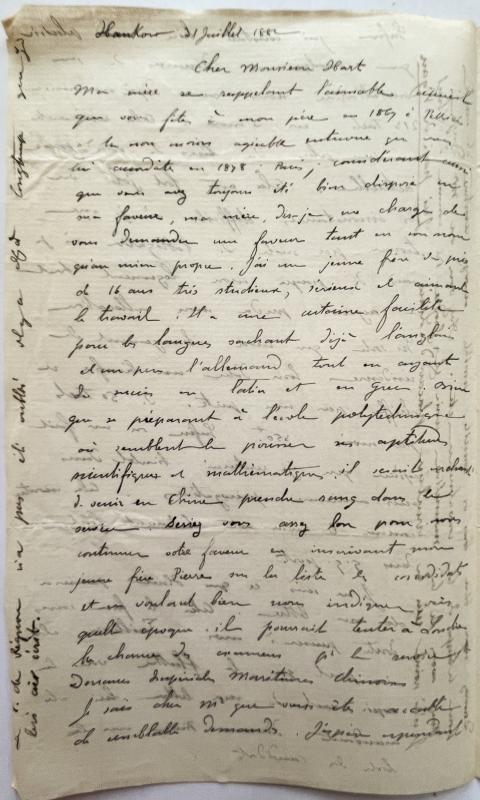 Hankow 31 Juillet 1882
Cher Monsieur Hart
Ma mère se rappelant l'aimable accueil
que vous fîtes à mon père en 1867 à Pékin
la non moins agréable entrevue que vous
lui accordâtes en 1878 Paris, considérant aussi
que vous avez toujours été bien disposé en
ma faveur, ma mère, dis-je me charge de
vous demander une faveur tant en son nom
qu'au mien propre. J'ai un jeune frère de près
de 16 ans très studieux, sérieux et aimant
le travail : Il a une certaine facilité
pour les langues sachant déjà l'anglais
et un peu l'allemand tout en ayant
du succès en latin et en Grec :
que se préparant à l'école polytechnique
où semblent le pousser ses aptitudes
scientifiques et mathématiques il serait
de venir en Chine prendre rang dans le
service. Seriez vous assez bon pour nous
continuer votre faveur en inscrivant mon
jeune frère Pierre sur la liste des candidats
et en voulant bien nous indiquer vers
quelle époque il pourrait tenter à Londres
les chances des examens pour le service des
Douanes Impériales Maritimes Chinoises
Je sais cher Mr que vous êtes accablé
de semblables demandes. J'espère cependant
M. de Vignon n'a pas été oublié il y a déjà longtemps que je
lui ai écrit.